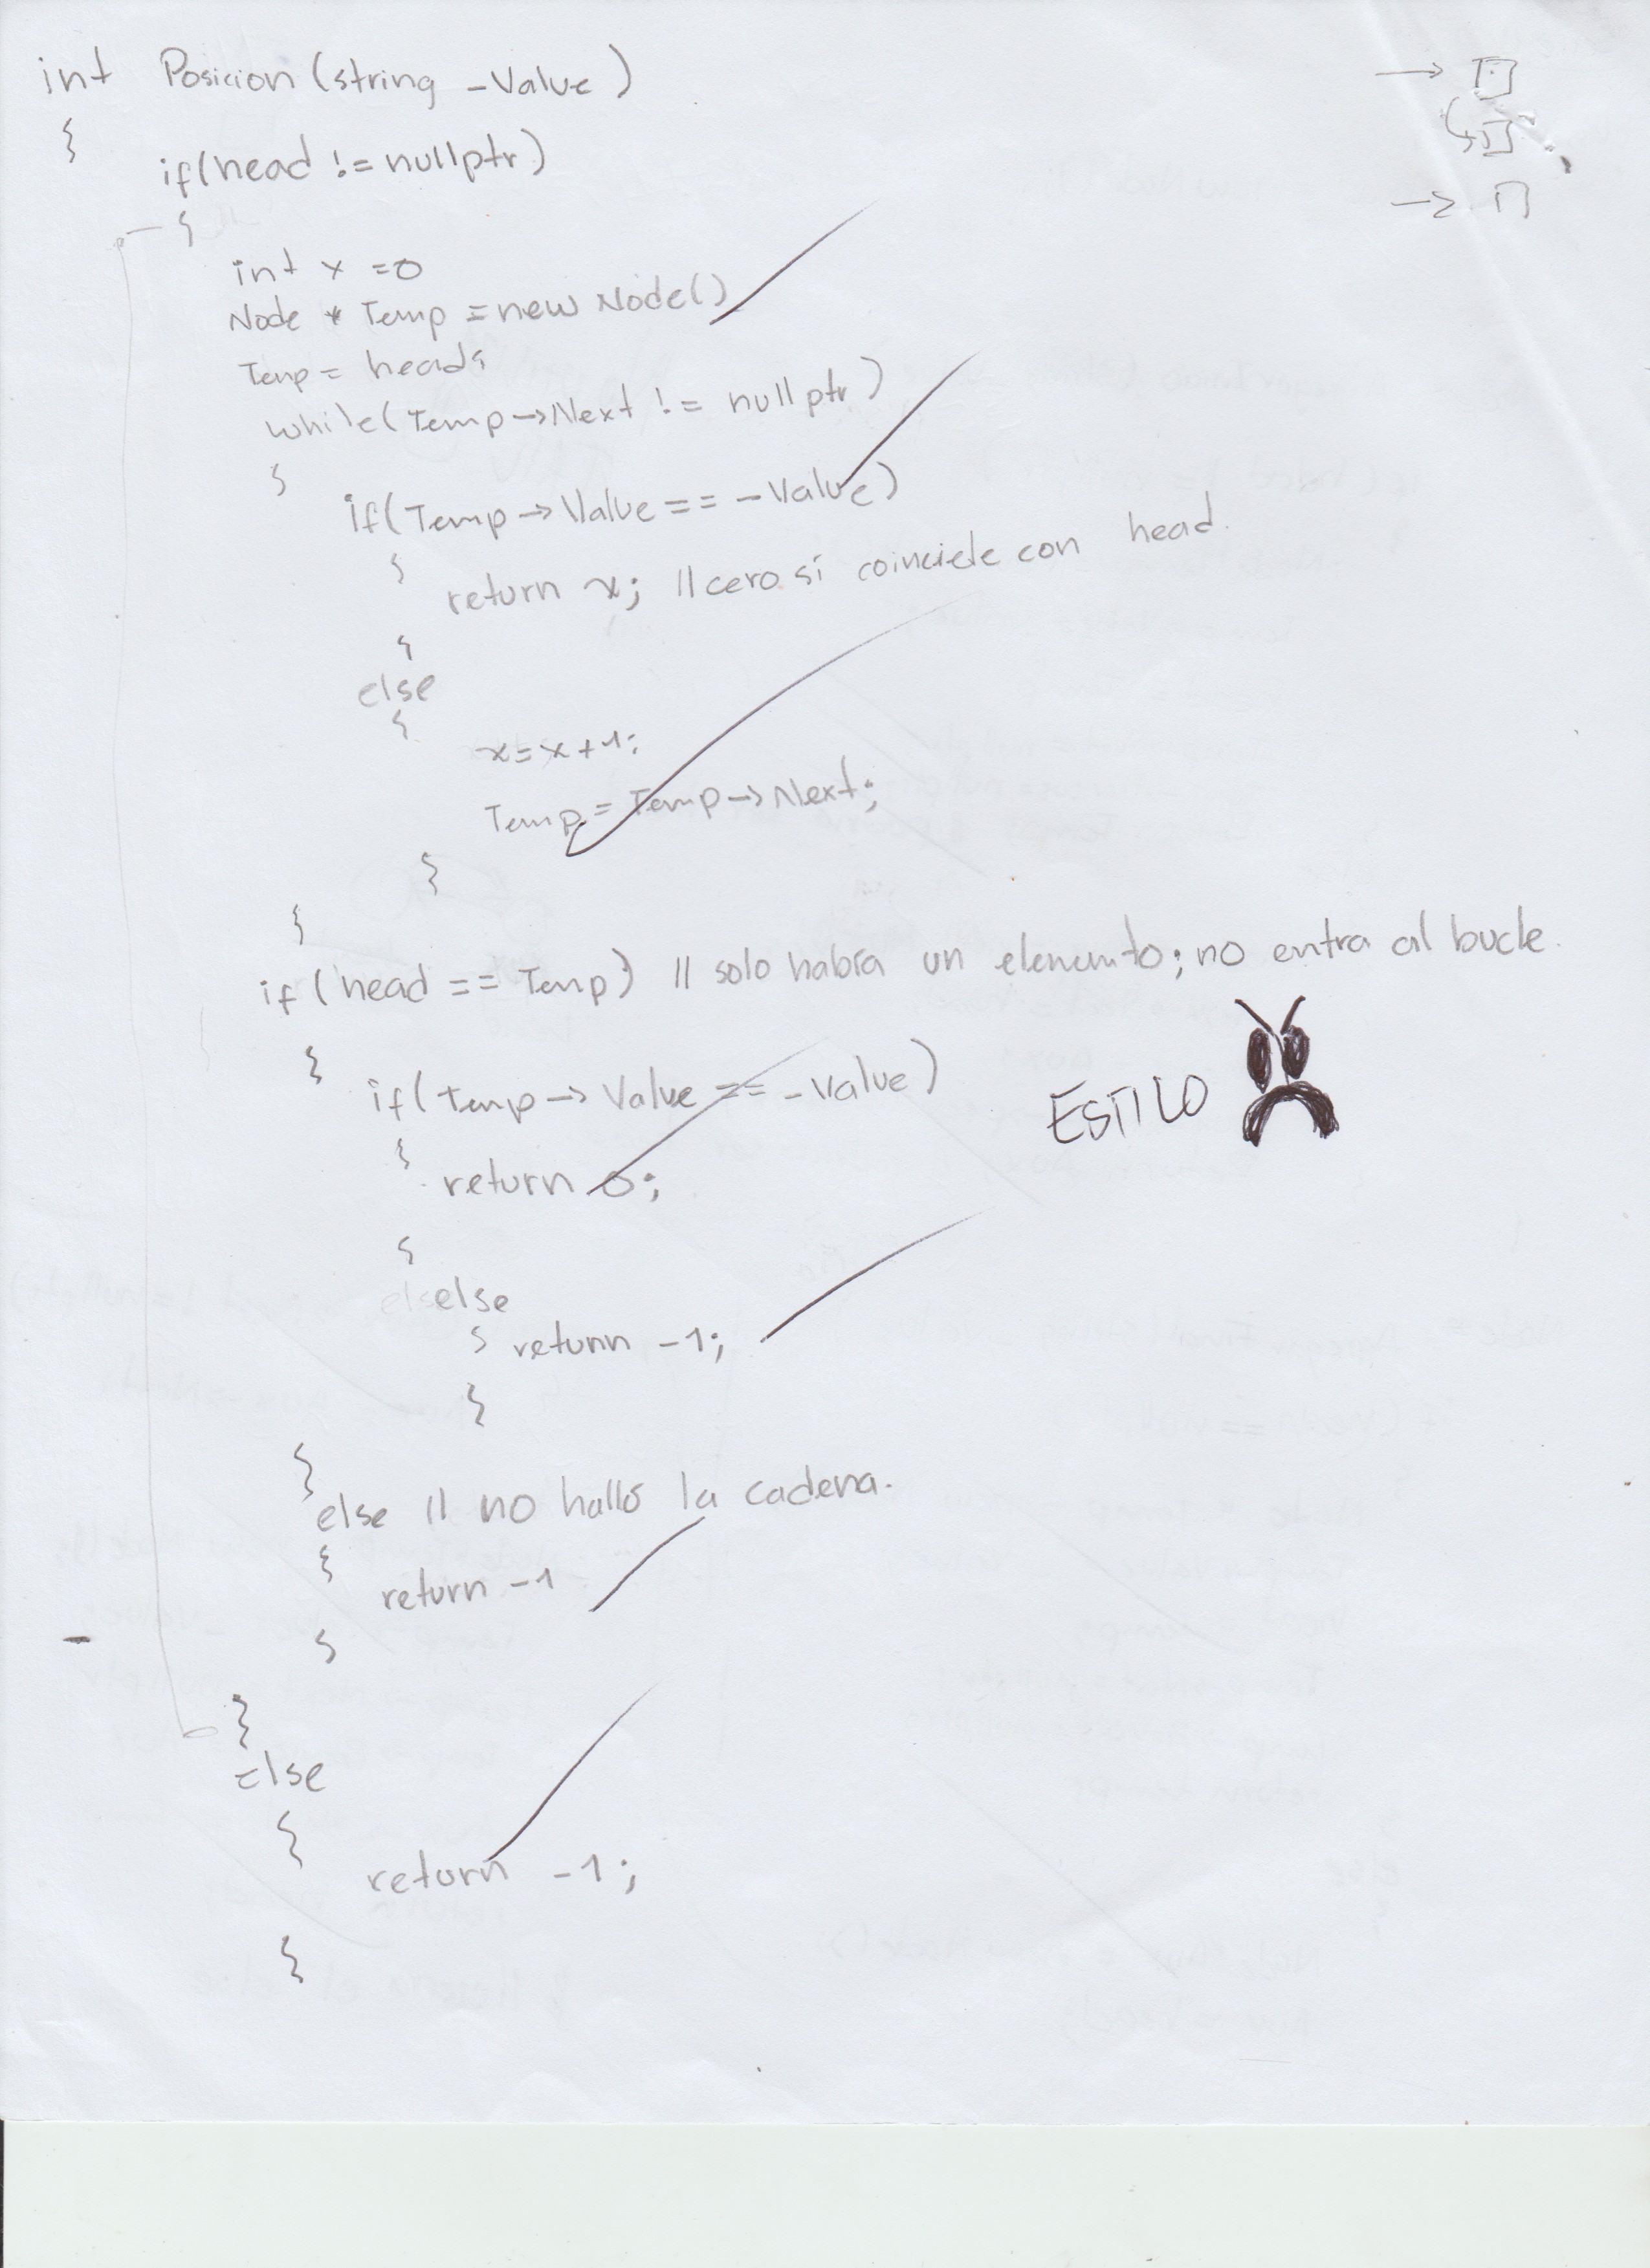 int Posicion (string _Value)
{
if(head != nullptr)
{
int x =0
Node * Temp = new Node()
Temp = head;
while(Temp->Next != nullptr)
{
if(Temp->Value == _Value)
{
return x; // cero si coincide con head.
}
else
{
x=x+1;
Temp = Temp->Next;
}
}
if (head == Temp) // solo habra un elemento; no entra al bucle.
{ if(temp->Value == _Value)
ESTILO
{ return 0;
}
else
{ return -1;
}
}
else // no halló la cadena.
{
return -1
}
}
else
{
return -1;
}